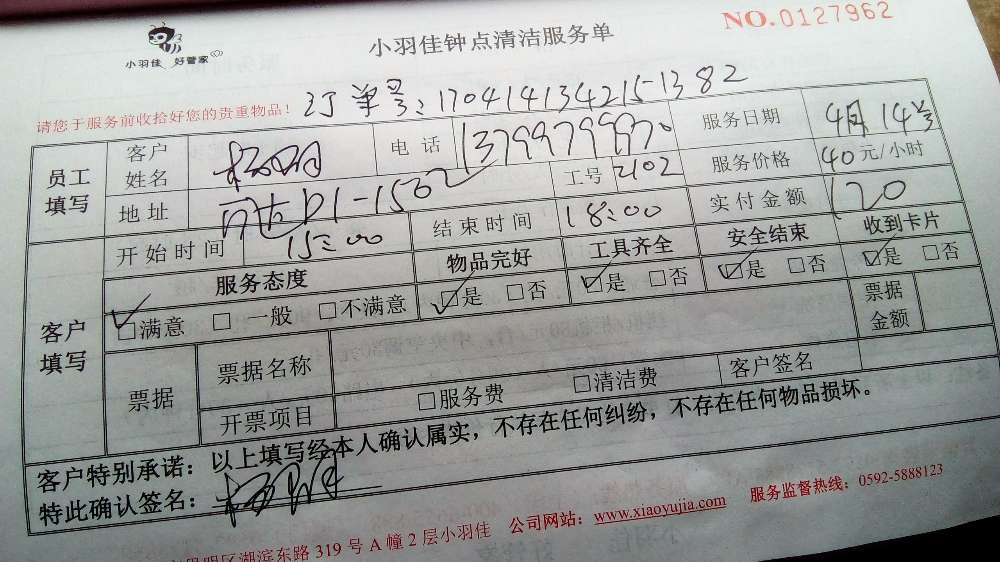 小羽佳 好管家
小羽佳钟点清洁服务单
NO.0127962
请您于服务前收拾好您的贵重物品！
订单号：1704141342151382
员工填写
客户姓名
电话 13799799970
服务日期 4月14号
地址 D1-1502
工号 2102
服务价格 40元/小时
开始时间 15:00
结束时间 18:00
实付金额 120
客户填写
服务态度 物品完好 工具齐全 安全结束 收到卡片
☑满意 □一般 □不满意 ☑是 □否 ☑是 □否 ☑是 □否 ☑是 □否
票据 票据名称 票据金额
开票项目 □服务费 □清洁费 客户签名
客户特别承诺：以上填写经本人确认属实，不存在任何纠纷，不存在任何物品损坏。
特此确认签名：
明区湖滨东路319号A幢2层小羽佳 公司网站：www.xiaoyujia.com 服务监督热线：0592-5888123